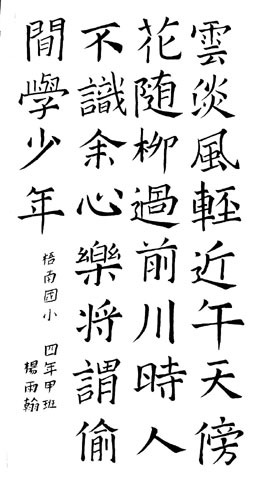 雲淡風輕近午天傍
花隨柳過前川時人
不識余心樂將謂偷
閒學少年
梧南國小 四年甲班
楊雨翰